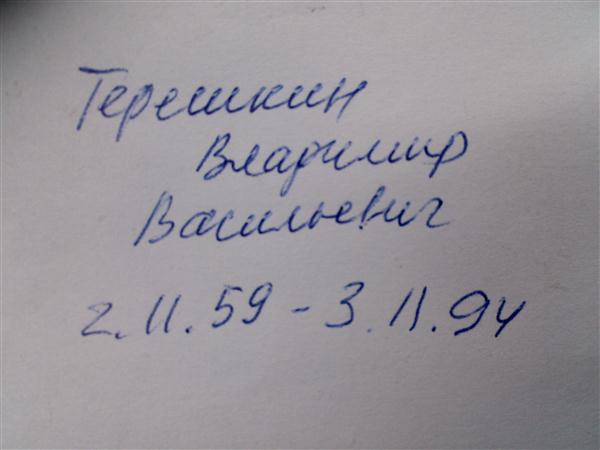 Терешкин
Владимир
Васильевич
2.11.59 - 3.11.94